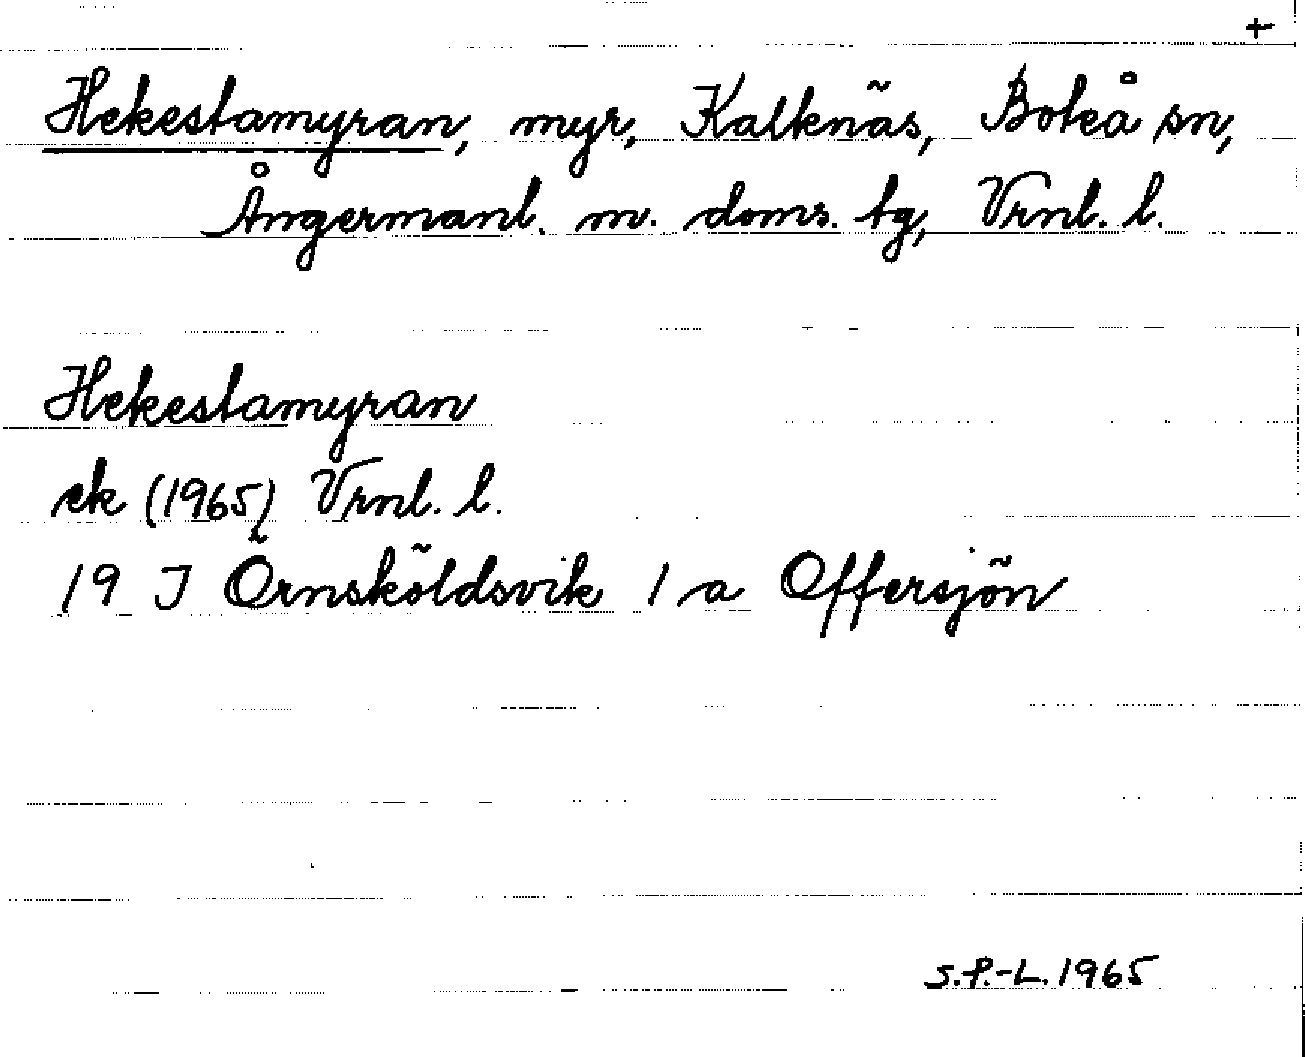 +
Hekestamyran, myr, Kalknäs, Boteå sn,
Ångermanl. m. doms. tg, Vrnl. l.
Hekestamyran
ek (1965) Vrnl. l.
19 J Örnsköldsvik 1 a Offersjön
S.P.-L. 1965